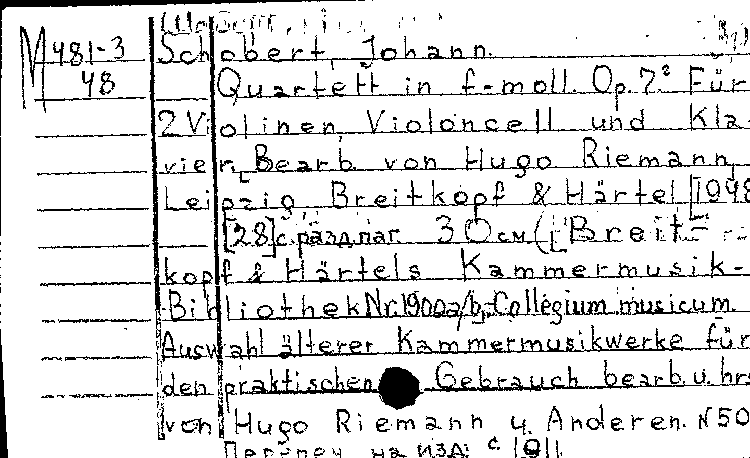 M 481-3
48
Schobert, Johann.
Quartett in f-moll. Op. 7.² Für
2 Violinen, Violoncell und Kla-
vier, Bearb. von Hugo Riemann,
Leipzig, Breitkopf & Härtel [1948
[28] с. разд. паг. 30 см ([Breit-
kopf & Härtels Kammermusik-
Bibliothek Nr. 1900a/b, Collegium musicum
Auswahl älterer Kammermusikwerke für
den praktischen Gebrauch bearb. u. hrs
von Hugo Riemann u. Anderen. N 50
Перепеч. на изд: с 1911